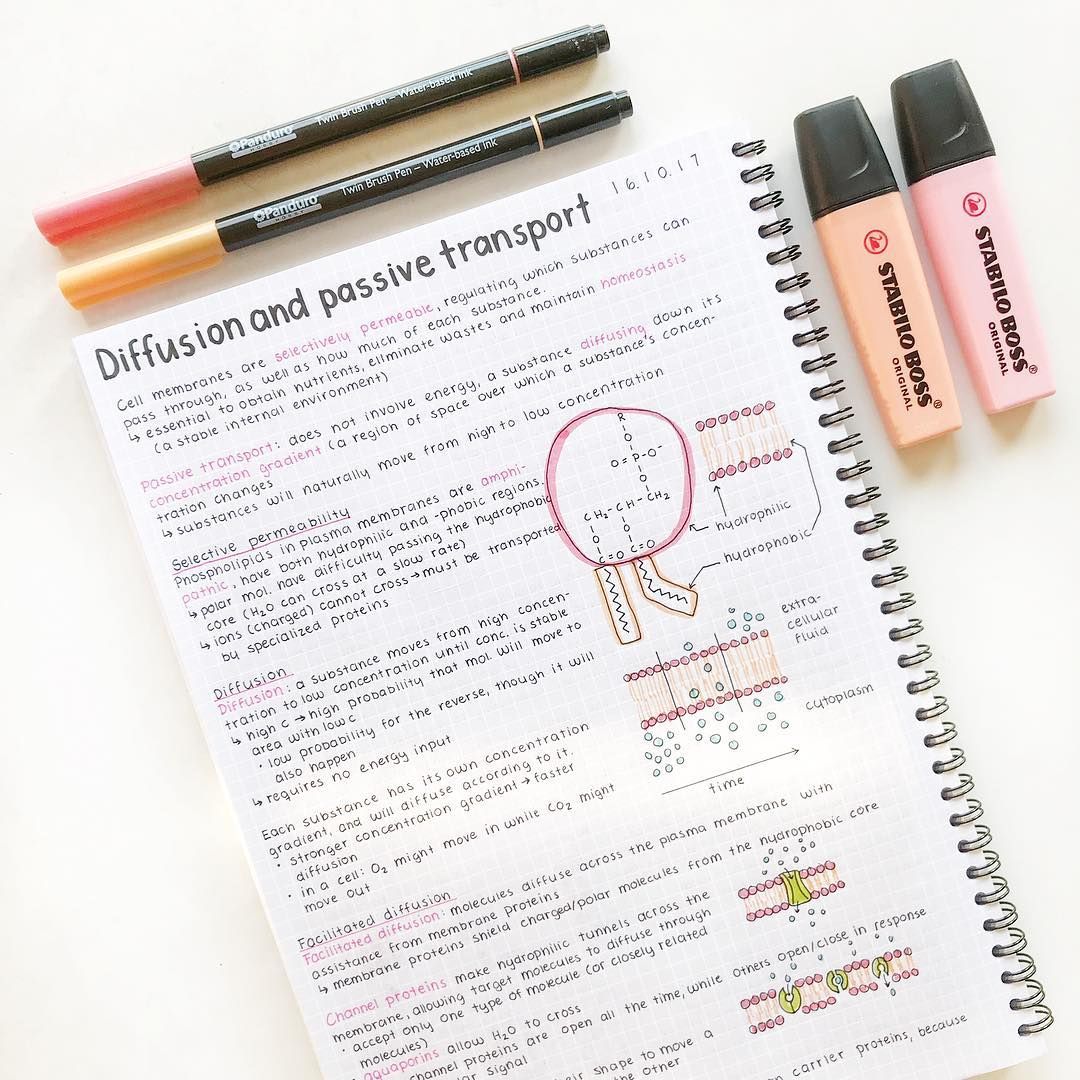 Panduro
HOBBY
Twin Brush Pen – Water-based ink
Panduro
HOBBY
Twin Brush Pen – Water-based ink
STABILO BOSS®
ORIGINAL
STABILO BOSS®
ORIGINAL
16.10.17
Diffusion and passive transport
Cell membranes are selectively permeable, regulating which substances can
pass through, as well as how much of each substance.
↳ essential to obtain nutrients, eliminate wastes and maintain homeostasis
(a stable internal environment)
passive transport: does not involve energy, a substance diffusing down its
concentration gradient (a region of space over which a substance's concen-
tration changes
↳ substances will naturally move from high to low concentration
Selective permeability
Phospholipids in plasma membranes are amphi-
pathic, have both hydrophilic and -phobic regions.
↳ polar mol. have difficulty passing the hydrophobic
core (H₂O can cross at a slow rate)
↳ ions (charged) cannot cross → must be transported
by specialized proteins
R
O
O=P-O-
O
CH₂-CH-CH₂
O O
C=O C=O
hydrophilic
hydrophobic
Diffusion
Diffusion: a substance moves from high concen-
tration to low concentration until conc. is stable
↳ high c → high probability that mol. will move to
area with low c
• low probability for the reverse, though it will
also happen
↳ requires no energy input
extra-
cellular
fluid
cytoplasm
time
Each substance has its own concentration
gradient, and will diffuse according to it.
• stronger concentration gradient → faster
diffusion
• in a cell: O₂ might move in while CO₂ might
move out
Facilitated diffusion
Facilitated diffusion: molecules diffuse across the plasma membrane with
assistance from membrane proteins
↳ membrane proteins shield charged/polar molecules from the hydrophobic core
Channel proteins make hydrophilic tunnels across the
membrane, allowing target molecules to diffuse through
• accept only one type of molecule (or closely related
molecules)
• aquaporins allow H₂O to cross
channel proteins are open all the time, while others open/close in response
signal
their shape to move a
the other
carrier proteins, because